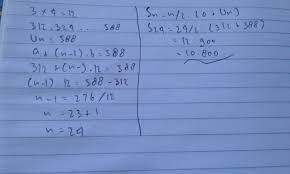 3 x 4 = 12
312, 324 ... 588
Un = 588
a + (n-1) . b = 588
312 + (n-1) . 12 = 588
(n-1) 12 = 588 - 312
n-1 = 276/12
n = 23 + 1
n = 24
Sn = n/2 . (a + Un)
S24 = 24/2 (312 + 588)
= 12 . 900
= 10.800